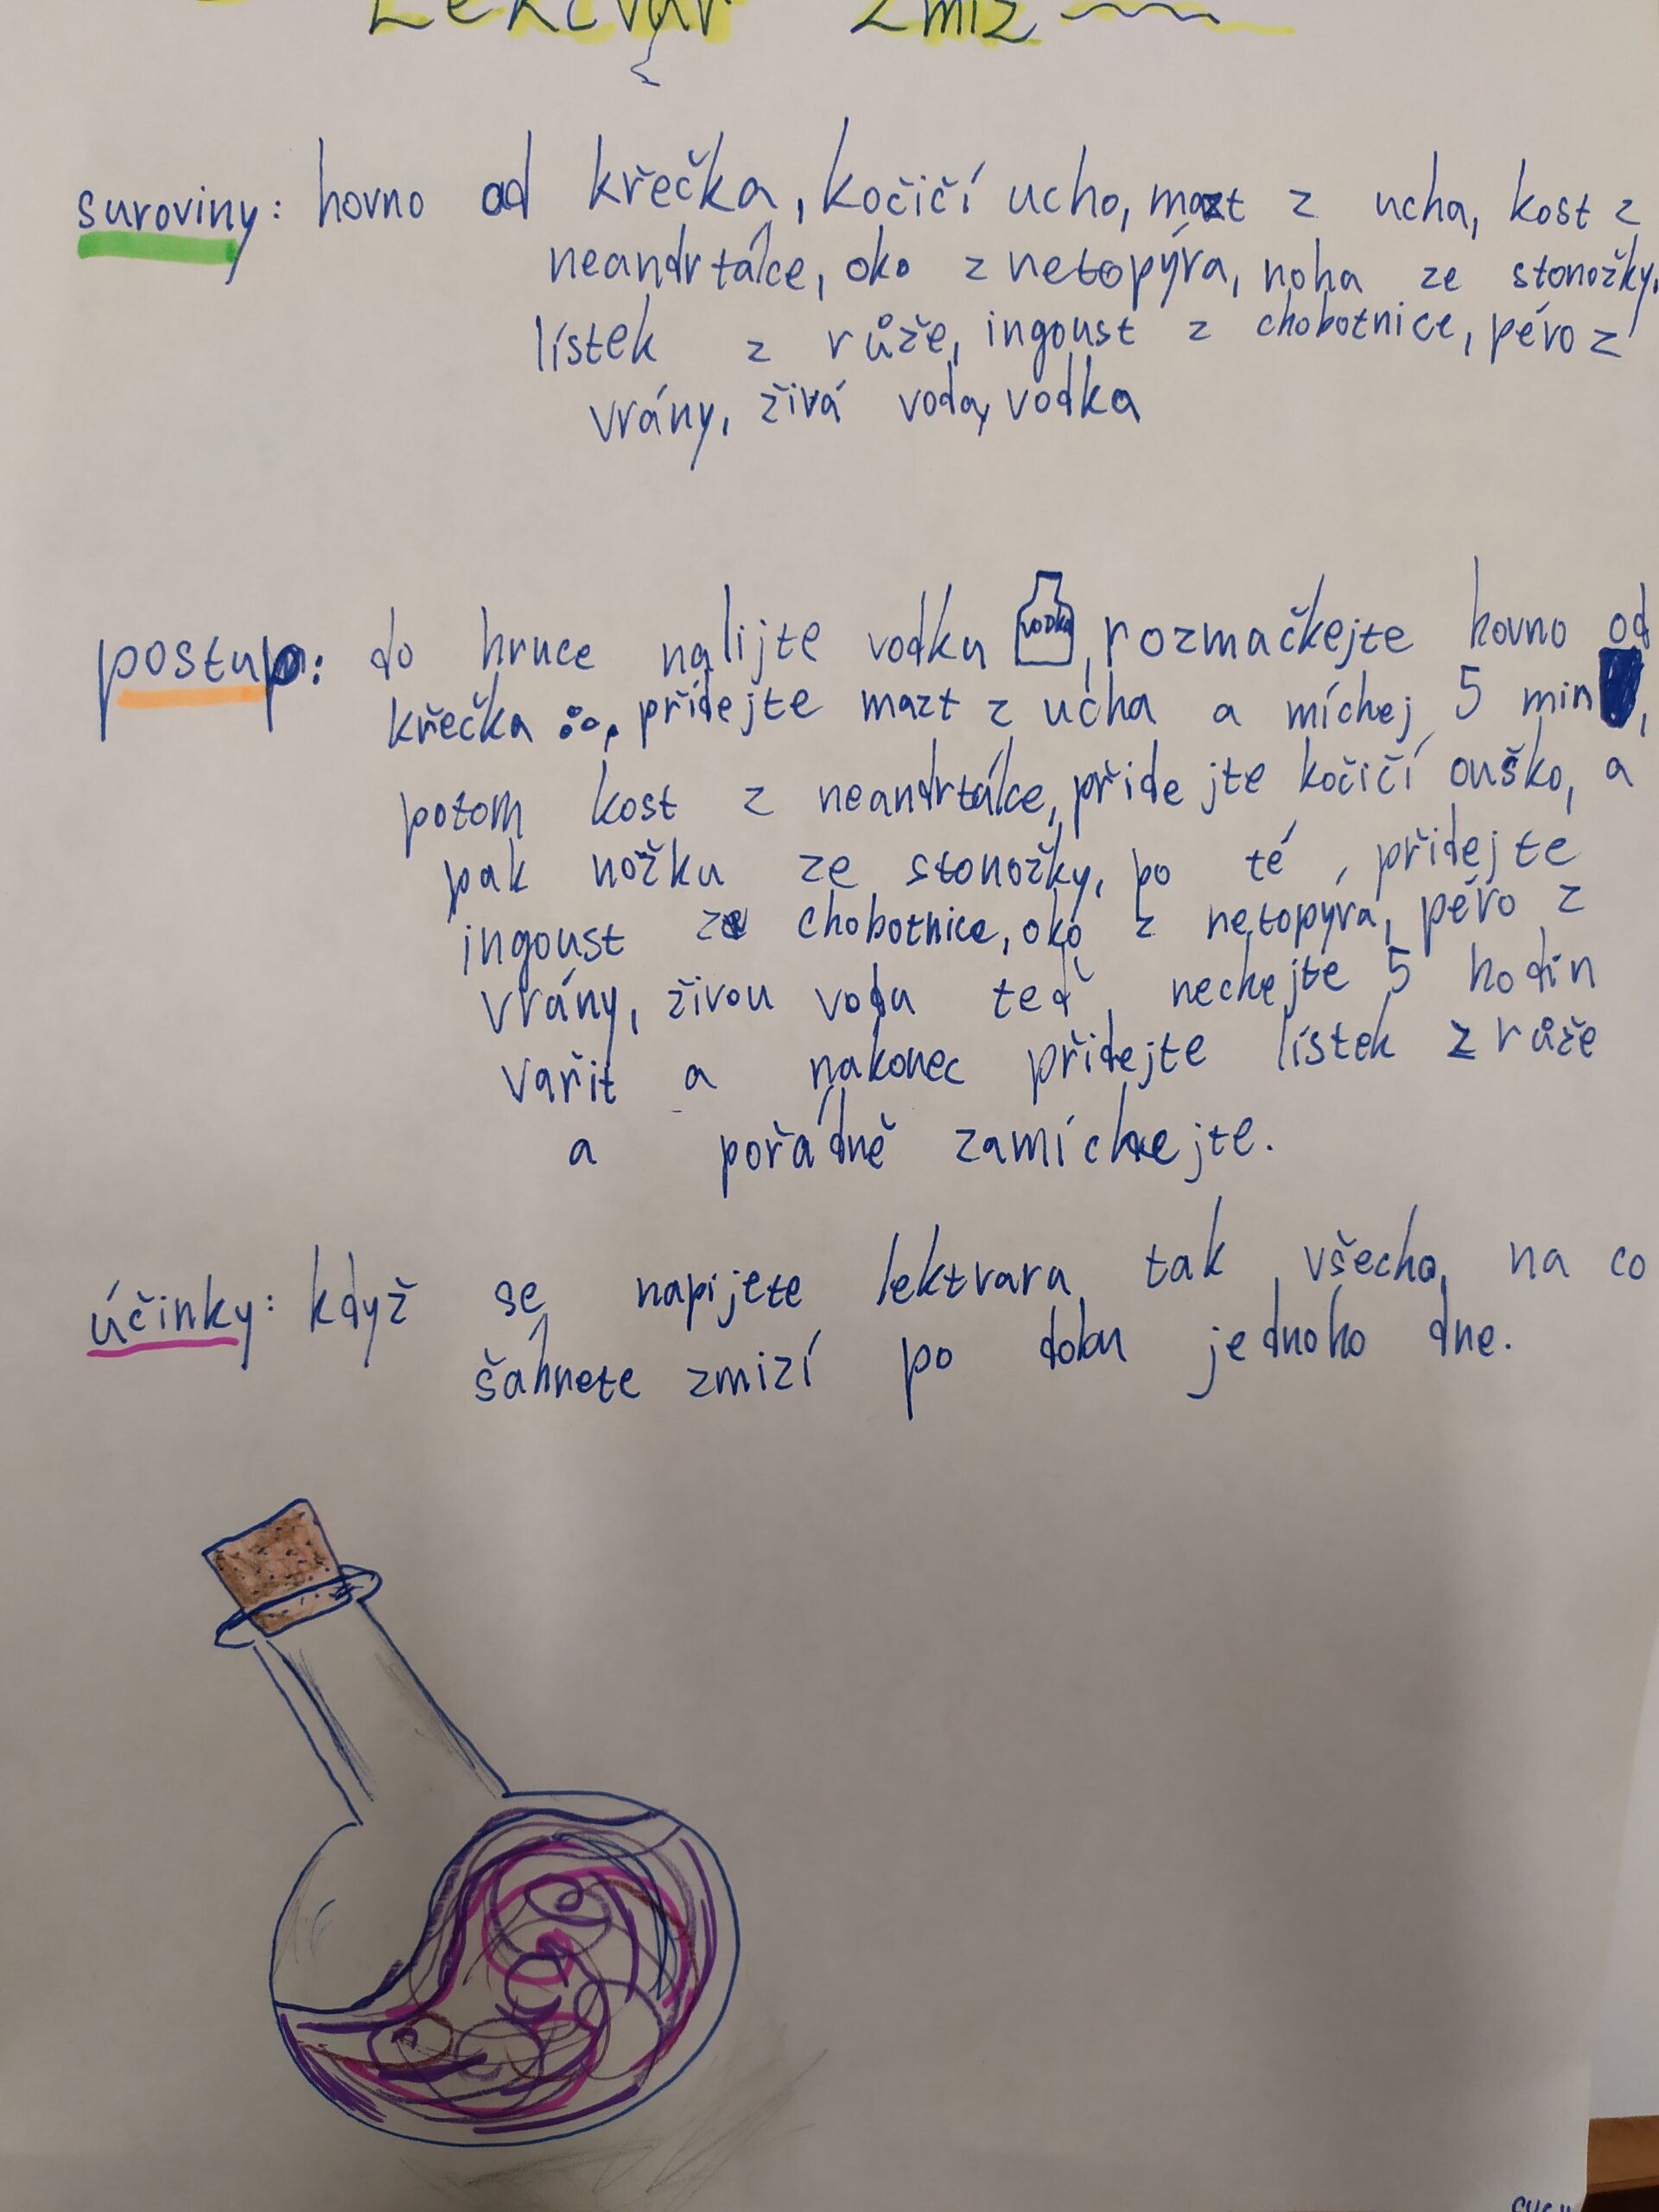 Lektvar zmiz
suroviny: hovno od křečka, kočičí ucho, mazt z ucha, kost z
neandrtálce, oko z netopýra, noha ze stonožky,
lístek z růže, ingoust z chobotnice, péro z
vrány, živá voda, vodka
postup: do hruce nalijte vodku vodka, rozmačkejte hovno od
křečka, přidejte mazt z ucha a míchej 5 min,
potom kost z neandrtálce, přidejte kočičí ouško, a
pak nožku ze stonožky, po té, přidejte
ingoust ze chobotnice, oko z netopýra, péro z
vrány, živou vodu teď, nechejte 5 hodin
vařit a nakonec přidejte lístek z růže
a pořádně zamíchejte.
účinky: když se napijete lektvara, tak všecho, na co
šáhnete zmizí po dobu jednoho dne.